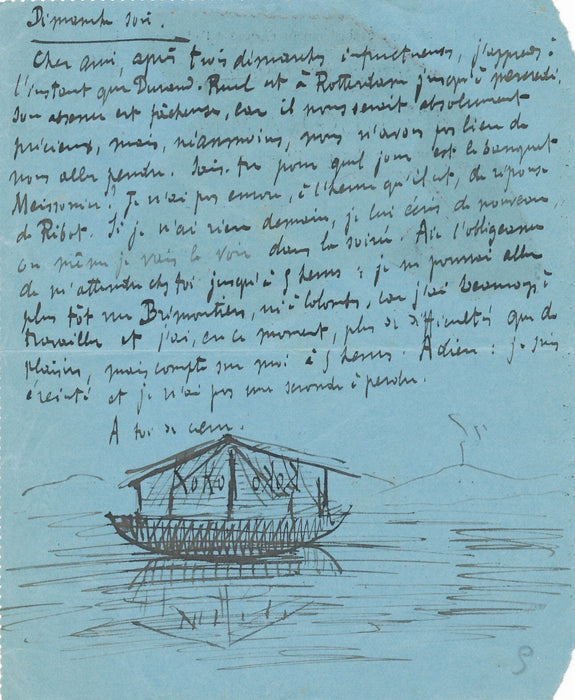 Dimanche soir.
Cher ami, après trois dimarches infructueuses, j'apprends à
l'instant que Durand-Ruel est à Rotterdam jusqu'à mercredi.
Son absence est fâcheuse, car il nous serait absolument
précieux, mais, néanmoins, nous n'avons pas lieu de
nous aller pendre. Sais-tu pour quel jour est le banquet
Meissonier? Je n'ai pas encore, à l'heure qu'il est, de réponse
de Ribot. Si je n'ai rien demain, je lui écris de nouveau,
ou même je vais le voir dans la soirée. Aie l'obligeance
de m'attendre chez toi jusqu'à 5 heures : je ne pourrai aller
plus tôt rue Brémontier, ni à Colombes, car j'ai beaucoup à
travailler et j'ai, en ce moment, plus de difficultés que de
plaisirs, mais compte sur moi à 5 heures. Adieu : je suis
éreinté et je n'ai pas une seconde à perdre.
A toi de cœur.